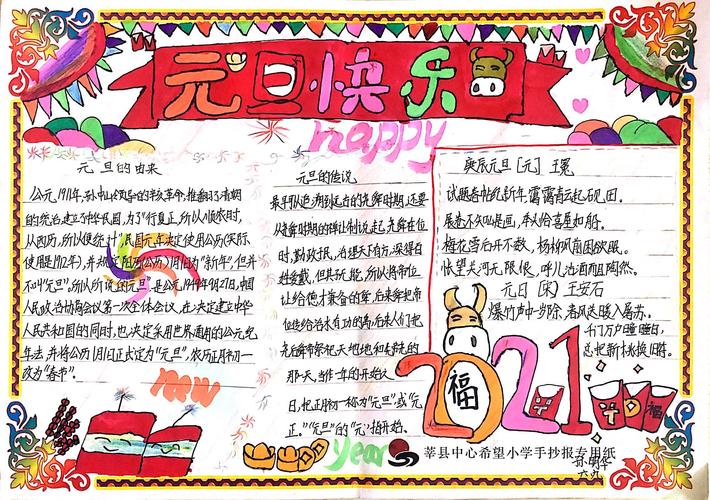 元旦快乐
happy
元旦的由来
公元1911年,孙中山领导的辛亥革命,推翻了清朝
的统治,建立了中华民国,为了“行夏正,所以顺农时,
从西历,所以便统计”民国元年决定使用公历(实际
使用是1912年),并规定阳历(公历)1月1日为“新年”,但并
不叫“元旦”,所以所说的元旦,是公元1949年9月27日,中国
人民政治协商会议第一次全体会议,在决定建立中华
人民共和国的同时,也决定采用世界通用的公元纪
年法,并将公历1月1日正式定为“元旦”,农历正月初一
改为“春节”.
new
元旦的传说
最早可以追溯到远古的尧舜时期,还要
从尧舜时期的禅让制说起,尧舜在位
时,勤政于民,治理天下有方,深得百
姓爱戴,但其无能,所以将帝位
让给德才兼备的舜,后来舜把帝
位传给治水有功的禹,后来人们把
尧舜帝祭祀天地和先帝的
那一天,当作一年的开始之
日,把正月初一称为“元旦”或“元
正。”“元旦”的“元”指开始.
year
庚辰元旦[元] 王冕
试题春帖纪新年,霭霭青云起砚田.
梅花雪后开不数,杨柳风前困欲眠.
怅望天河无限恨,呼儿沽酒且陶然.
元日 (宋) 王安石
爆竹声中一岁除,春风送暖入屠苏.
千门万户瞳瞳日,
总把新桃换旧符.
2021
福
福
莘县中心希望小学手抄报专用纸